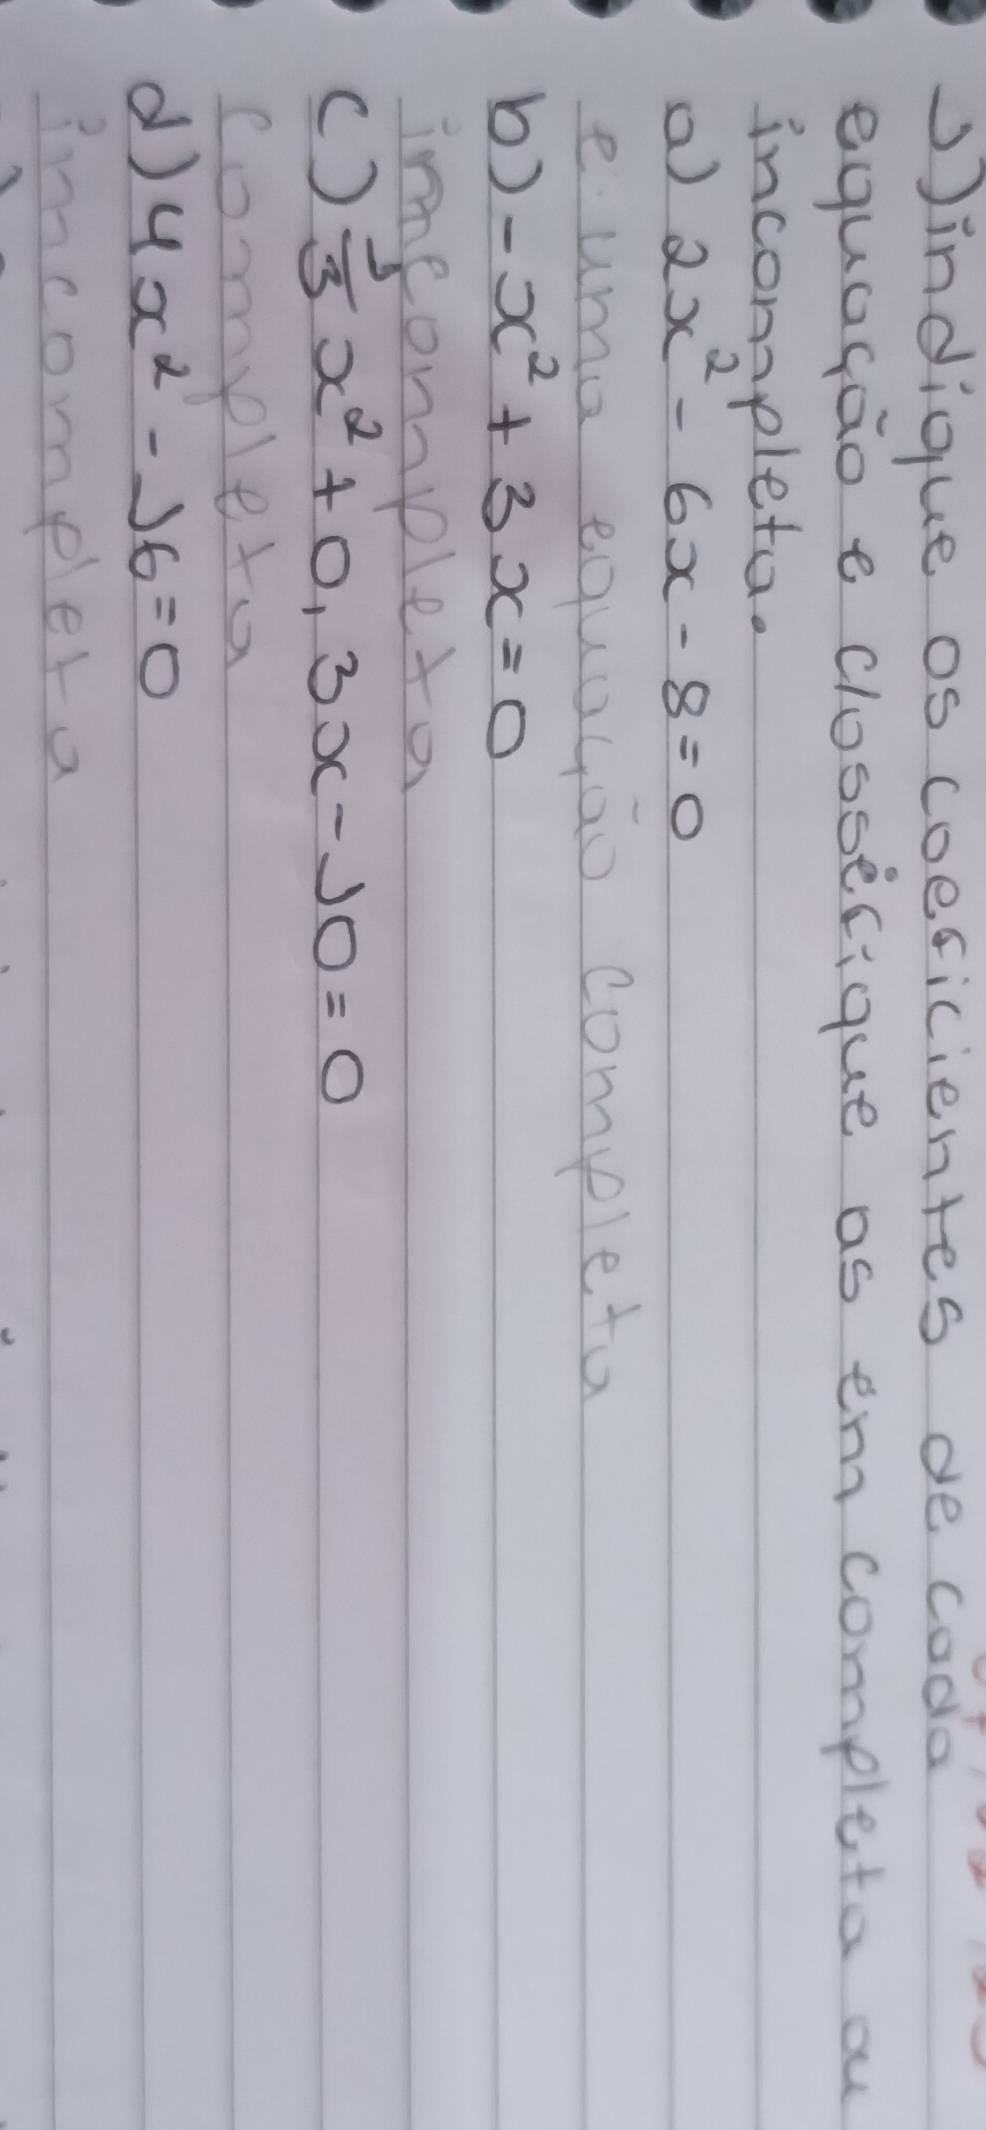 1) indique os coeficientes de cada
equação e classèfique as em completa ou
incompleta.
a) 2x² - 6x - 8 = 0
e uma equação completa
b) - x² + 3x = 0
imcompleta
c) 1/3 x² + 0,3x - 10 = 0
completa
d) 4x² - 16 = 0
incompleta